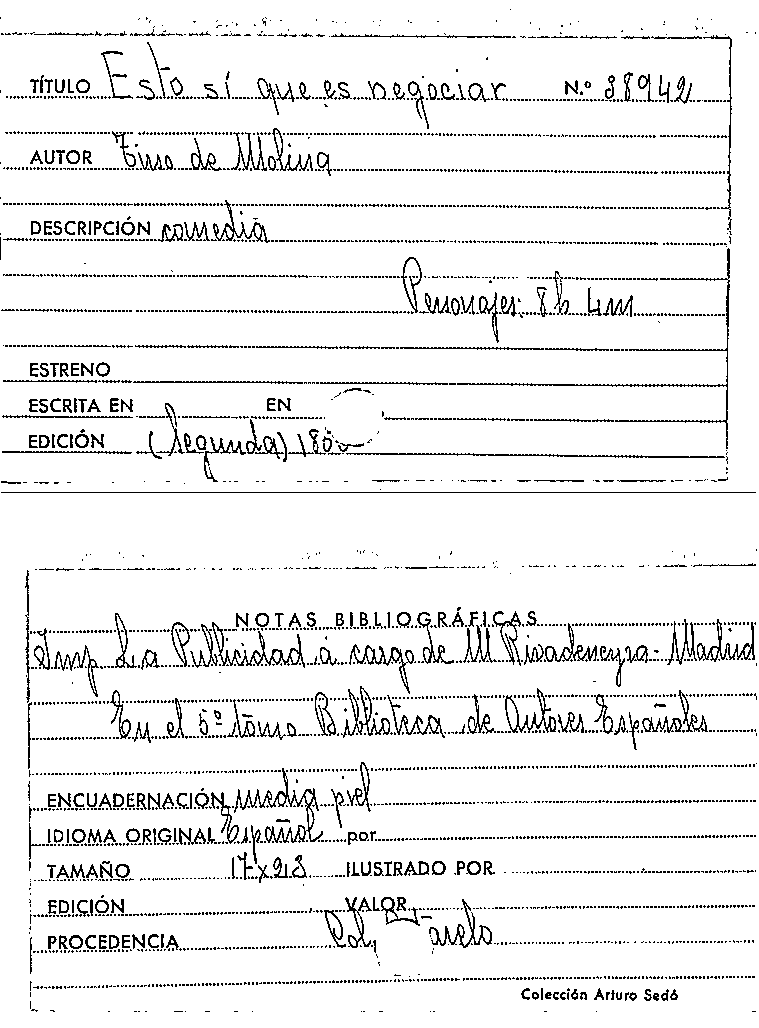 TÍTULO Esto sí que es negociar N.º 38942
AUTOR Tirso de Molina
DESCRIPCIÓN comedia
Personajes: 8h 4m
ESTRENO
ESCRITA EN EN
EDICIÓN (Segunda) 1850
NOTAS BIBLIOGRÁFICAS
Imp La Publicidad á cargo de M Rivadeneyra - Madrid
En el 5º tomo Biblioteca de Autores Españoles
ENCUADERNACIÓN media piel
IDIOMA ORIGINAL Español por
TAMAÑO 17x23 ILUSTRADO POR
EDICIÓN VALOR
PROCEDENCIA Col,
Colección Arturo Sedó